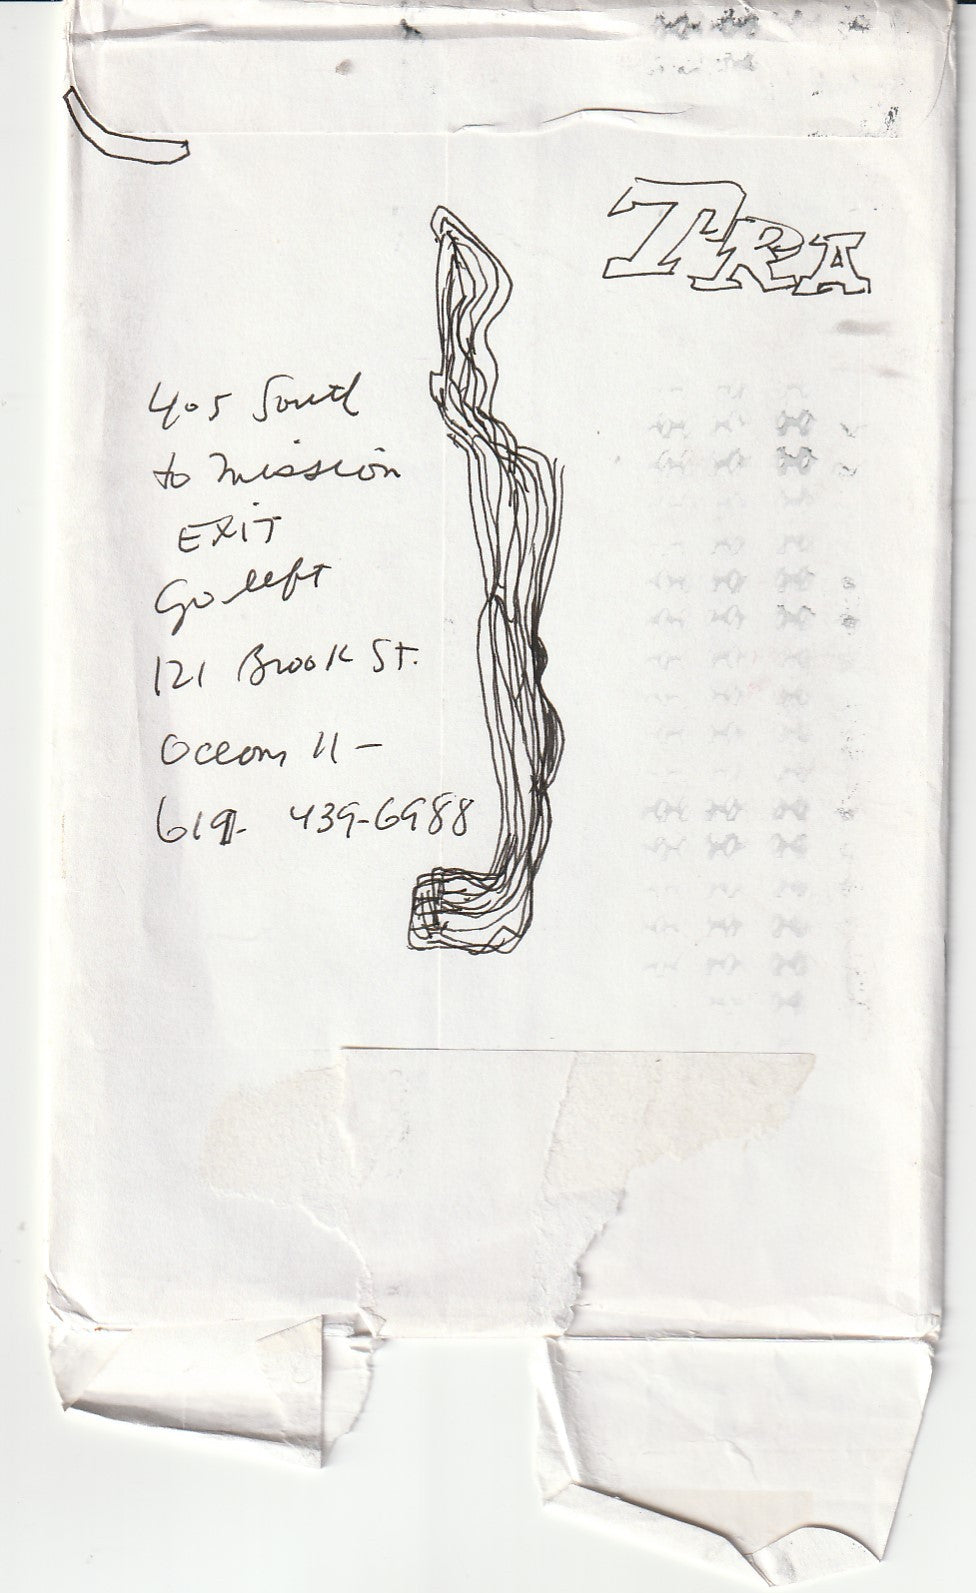 TRA
405 South
to mission
EXIT
Go left
121 Brook St.
Ocean 11 -
619- 439-6988